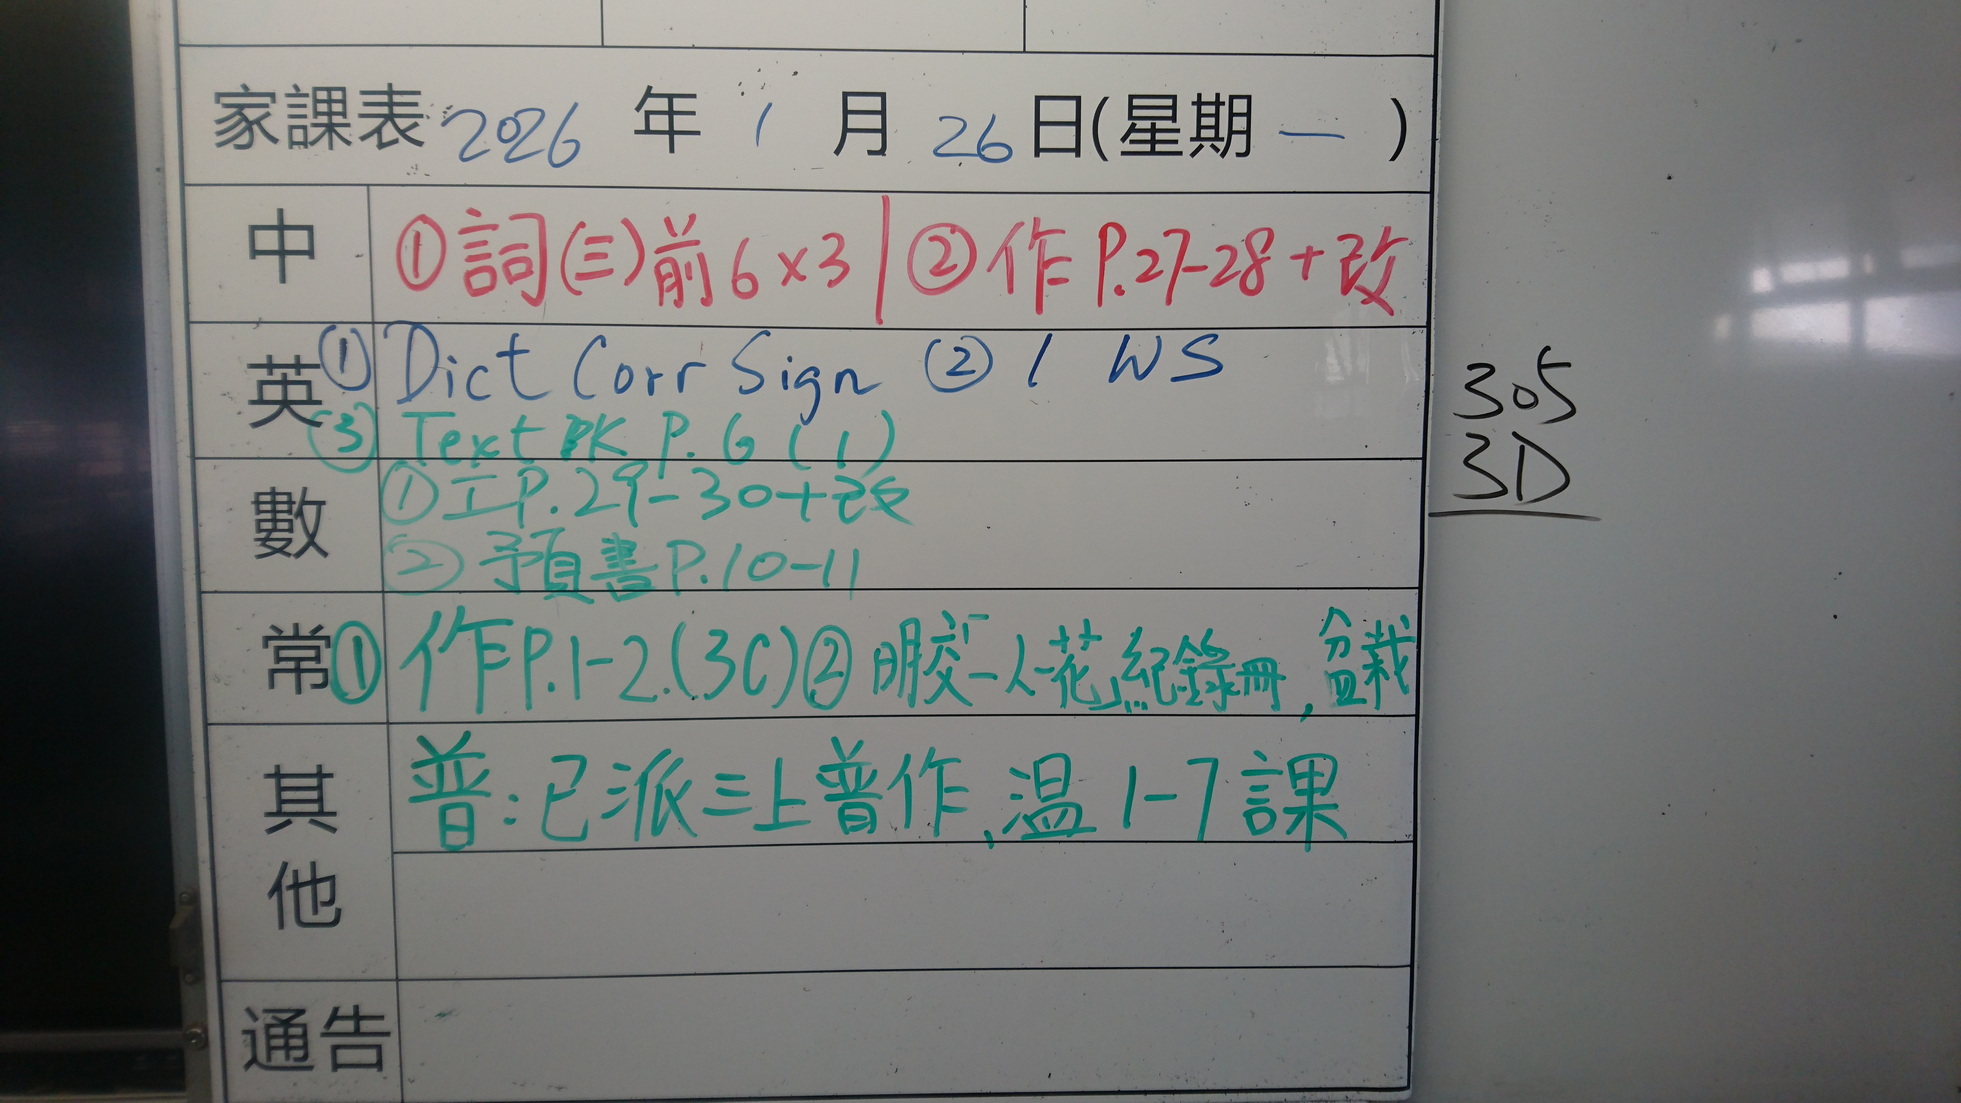 家課表 2026 年 1 月 26 日(星期 一 )
中 ①詞(三)前6×3 | ②作P.27-28+改
英 ① Dict Corr Sign ② 1 WS
③ Text BK P. 6 (1)
數 ①工P.29-30+改
②預書P.10-11
常 ①作P.1-2.(3C)②明交「一人一花」紀錄冊,盆栽
其他 普:已派三上普作,溫1-7課
通告
305
3D